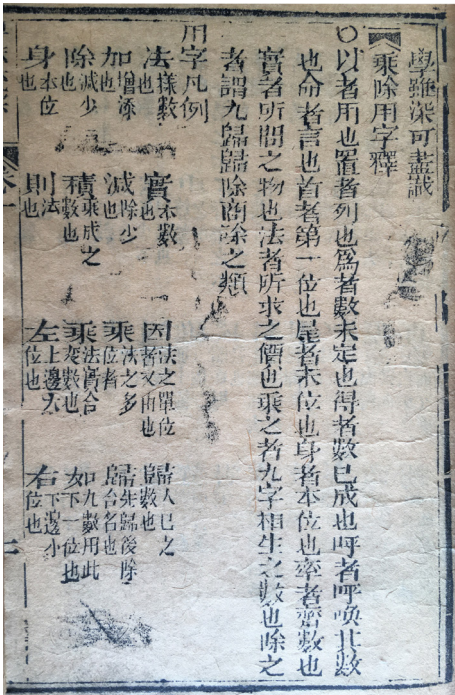 學雖深可盡識
乘除用字釋
○以者用也置者列也爲者數未定也得者數已成也呼者呼喚其數
也命者言也首者第一位也尾者末位也身者本位也率者齊數也
實者所問之物也法者所求之價也乘之者九字相生之數也除之
者謂九歸歸除商除之類
用字凡例
法樣數也 實本數也 因法之單位者又由也 歸人已之數也
加增添也 減除少也 乘法之多位者 歸先歸後除台名也
除減少也 積乘成之數也 乘法實合變數也 如九數用此下一位也
身本位也 則法也 左上邊大位也 右下邊小位也